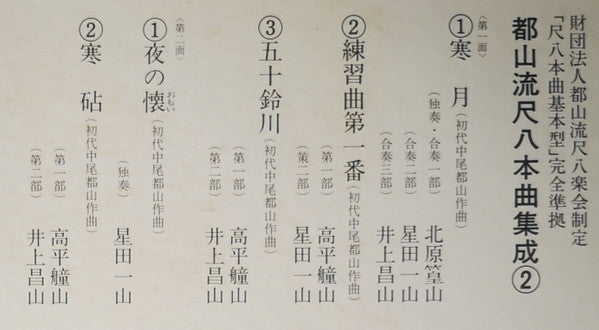 財団法人都山流尺八楽会制定
「尺八本曲基本型」完全準拠
都山流尺八本曲集成②
〈第一面〉
①寒月(初代中尾都山作曲)
(独奏・合奏一部) 北原篁山
(合奏二部) 星田一山
(合奏三部) 井上昌山
②練習曲第一番(初代中尾都山作曲)
(第一部) 高平艟山
(第二部) 星田一山
③五十鈴川(初代中尾都山作曲)
(第一部) 高平艟山
(第二部) 井上昌山
〈第二面〉
①夜の懐(初代中尾都山作曲)
おもい
(独奏) 星田一山
②寒砧(初代中尾都山作曲)
(第一部) 高平艟山
(第二部) 井上昌山